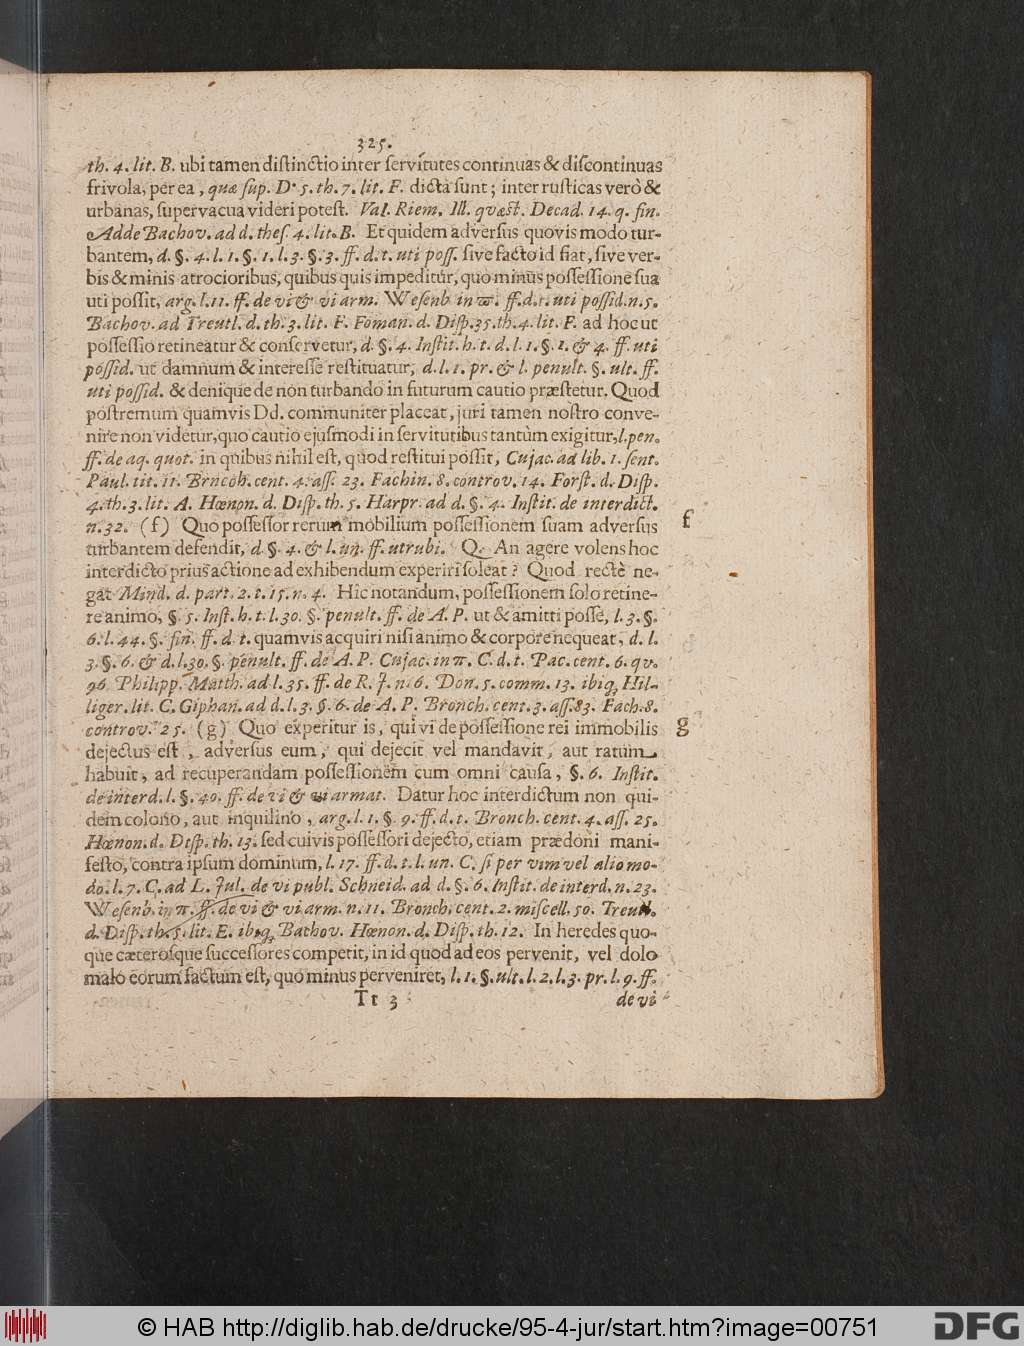 325.
th. 4. lit. B. ubi tamen diſtinctio inter ſervitutes continuas & diſcontinuas
frivola, per ea, quæ ſup. D. 5. th. 7. lit. F. dicta ſunt; inter ruſticas verò &
urbanas, ſupervacua videri poteſt. Val. Riem. Ill. quæſt. Decad. 14. q. fin.
Adde Bachov. ad d. theſ. 4. lit. B. Et quidem adverſus quovis modo tur-
bantem, d. §. 4. l. 1. §. 1. l. 3. §. 3. ff. d. t. uti poſſ. ſive facto id fiat, ſive ver-
bis & minis atrocioribus, quibus quis impeditur, quo minus poſſeſſione ſua
uti poſſit, arg. l. 11. ff. de vi & vi arm. Weſenb. in ϖ. ff. d. t. uti poſſid. n. 5.
Bachov. ad Treutl. d. th. 3. lit. F. Foman. d. Diſp. 35. th. 4. lit. F. ad hoc ut
poſſeſſio retineatur & conſervetur, d. §. 4. Inſtit. h. t. d. l. 1. §. 1. & 4. ff. uti
poſſid. ut damnum & intereſſe reſtituatur, d. l. 1. pr. & l. penult. §. ult. ff.
uti poſſid. & denique de non turbando in futurum cautio præſtetur. Quod
poſtremum quamvis Dd. communiter placeat, juri tamen noſtro conve-
nire non videtur, quo cautio ejuſmodi in ſervitutibus tantùm exigitur, l. pen.
ff. de aq. quot. in quibus nihil eſt, quod reſtitui poſſit, Cujac. ad lib. 1. ſent.
Paul. tit. 11. Brncoh. cent. 4. aſſ. 23. Fachin. 8. controv. 14. Forſt. d. Diſp.
4. th. 3. lit. A. Hœnon. d. Diſp. th. 5. Harpr. ad d. §. 4. Inſtit. de interdict.
n. 32. (f) Quo poſſeſſor rerum mobilium poſſeſſionem ſuam adverſus
turbantem defendit, d. §. 4. & l. un. ff. utrubi. Q. An agere volens hoc
interdicto prius actione ad exhibendum experiri ſoleat? Quod rectè ne-
gat Mind. d. part. 2. t. 15. n. 4. Hic notandum, poſſeſſionem ſolo retine-
re animo, §. 5. Inſt. h. t. l. 30. §. penult. ff. de A. P. ut & amitti poſſe, l. 3. §.
6. l. 44. §. fin. ff. d. t. quamvis acquiri niſi animo & corpore nequeat, d. l.
3. §. 6. & d. l. 30. §. penult. ff. de A. P. Cujac. in π. C. d. t. Pac. cent. 6. qv.
96. Philipp. Matth. ad l. 35. ff. de R. J. n. 6. Don. 5. comm. 13. ibiq; Hil-
liger. lit. C. Giphan. ad d. l. 3. §. 6. de A. P. Bronch. cent. 3. aſſ. 83. Fach. 8.
controv. 25. (g) Quo experitur is, qui vi de poſſeſſione rei immobilis
dejectus eſt, adverſus eum, qui dejecit vel mandavit, aut ratum
habuit, ad recuperandam poſſeſſionem cum omni cauſa, §. 6. Inſtit.
de interd. l. §. 40. ff. de vi & vi armat. Datur hoc interdictum non qui-
dem colono, aut inquilino, arg. l. 1. §. 9. ff. d. t. Bronch. cent. 4. aſſ. 25.
Hœnon. d. Diſp. th. 13. ſed cuivis poſſeſſori dejecto, etiam prædoni mani-
feſto, contra ipſum dominum, l. 17. ff. d. t. l. un. C. ſi per vim vel alio mo-
do. l. 7. C. ad L. Jul. de vi publ. Schneid. ad d. §. 6. Inſtit. de interd. n. 23.
Weſenb. in π. ff. de vi & vi arm. n. 11. Bronch. cent. 2. miſcell. 50. Treutl.
d. Diſp. th. 5. lit. E. ibiq; Bachov. Hœnon. d. Diſp. th. 12. In heredes quo-
que cæterosque ſucceſſores competit, in id quod ad eos pervenit, vel dolo
malo eorum factum eſt, quo minus perveniret, l. 1. §. ult. l. 2. l. 3. pr. l. 9. ff.
Tt 3 de vi
f
g
© HAB http://diglib.hab.de/drucke/95-4-jur/start.htm?image=00751
DFG